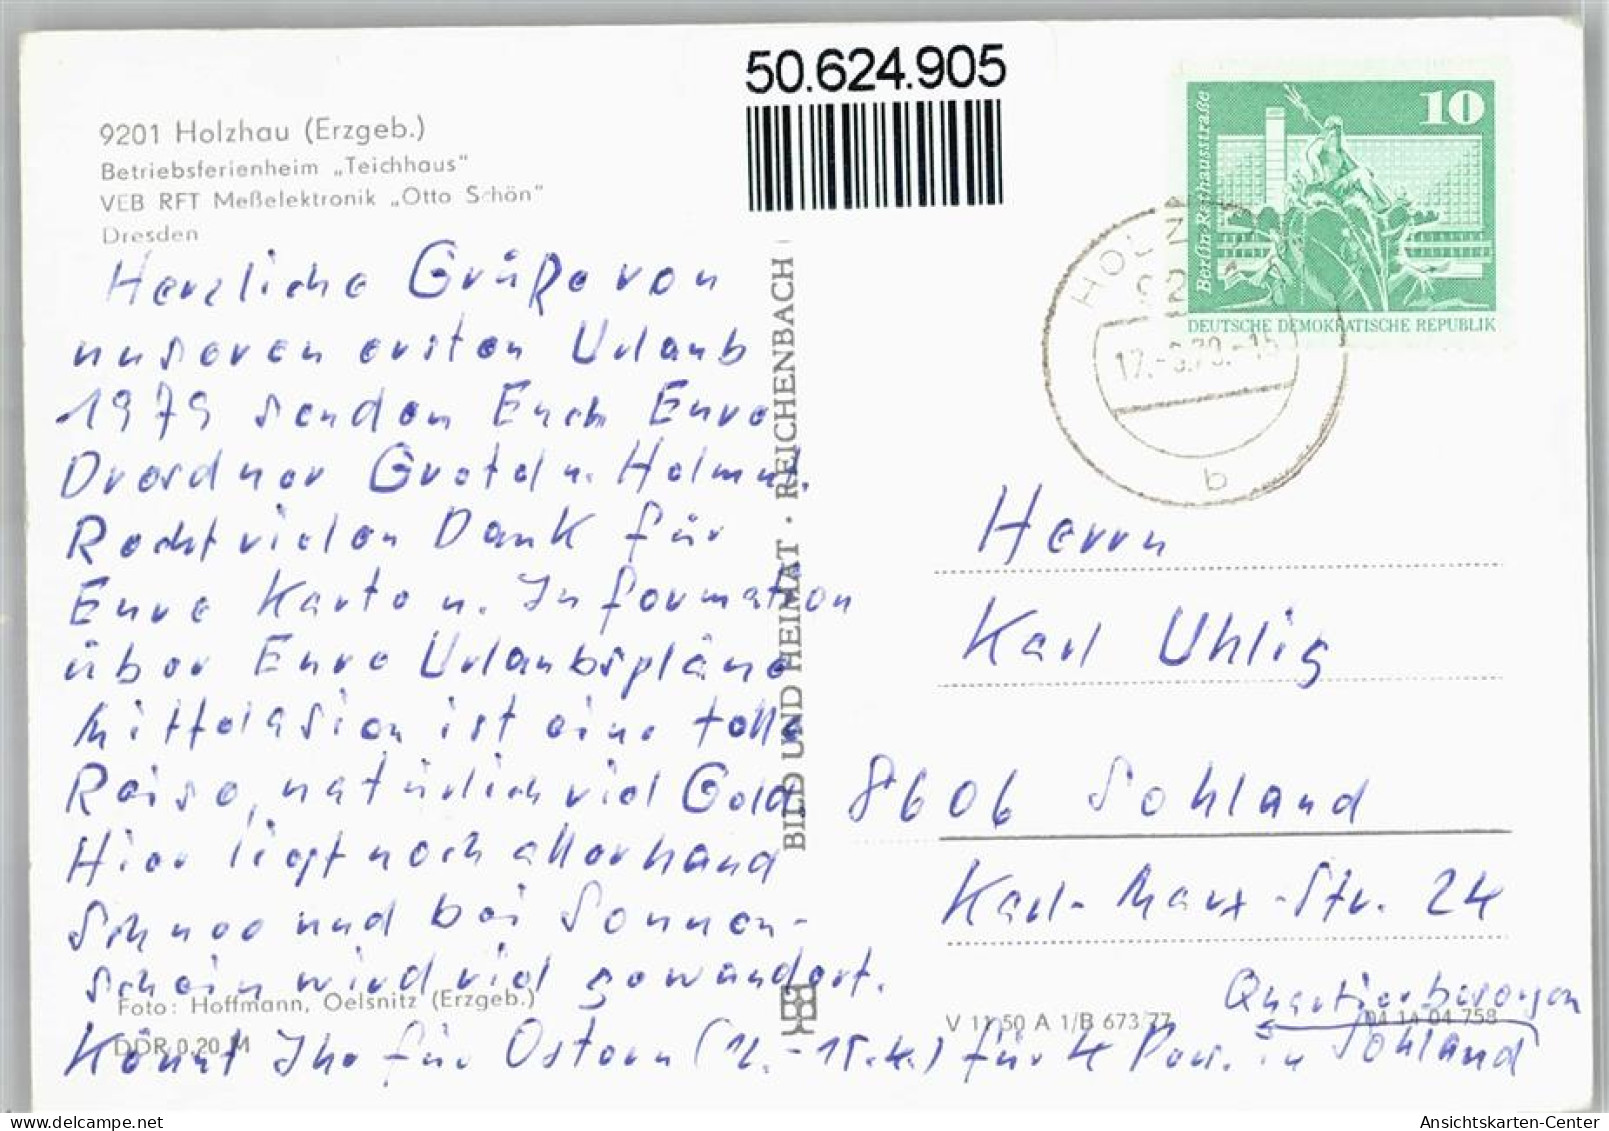 50.624.905
9201 Holzhau (Erzgeb.)
Betriebsferienheim „Teichhaus"
VEB RFT Meßelektronik „Otto Schön"
Dresden
Herzliche Grüße von
unseren ersten Urlaub
1979 senden Euch Eure
Dresdner Gretel u. Helmut.
Recht vielen Dank für
Eure Karte u. Information
über Eure Urlaubspläne
Mittelasien ist eine tolle
Reise, natürlich viel Geld.
Hier liegt noch allerhand
Schnee und bei Sonnen-
schein wird viel gewandert.
Könnt Ihr für Ostern (12.-15.4.) für 4 Pers. in Sohland
Quartier besorgen
Foto: Hoffmann, Oelsnitz (Erzgeb.)
DDR 0,20 M
BILD UND HEIMAT · REICHENBACH
V 11 50 A 1/B 673/77
04 14 04 758
10
Berlin-Rathausstraße
DEUTSCHE DEMOKRATISCHE REPUBLIK
b
Herrn
Karl Uhlig
8606 Sohland
Karl-Marx-Str. 24
Ansichtskarten-Center